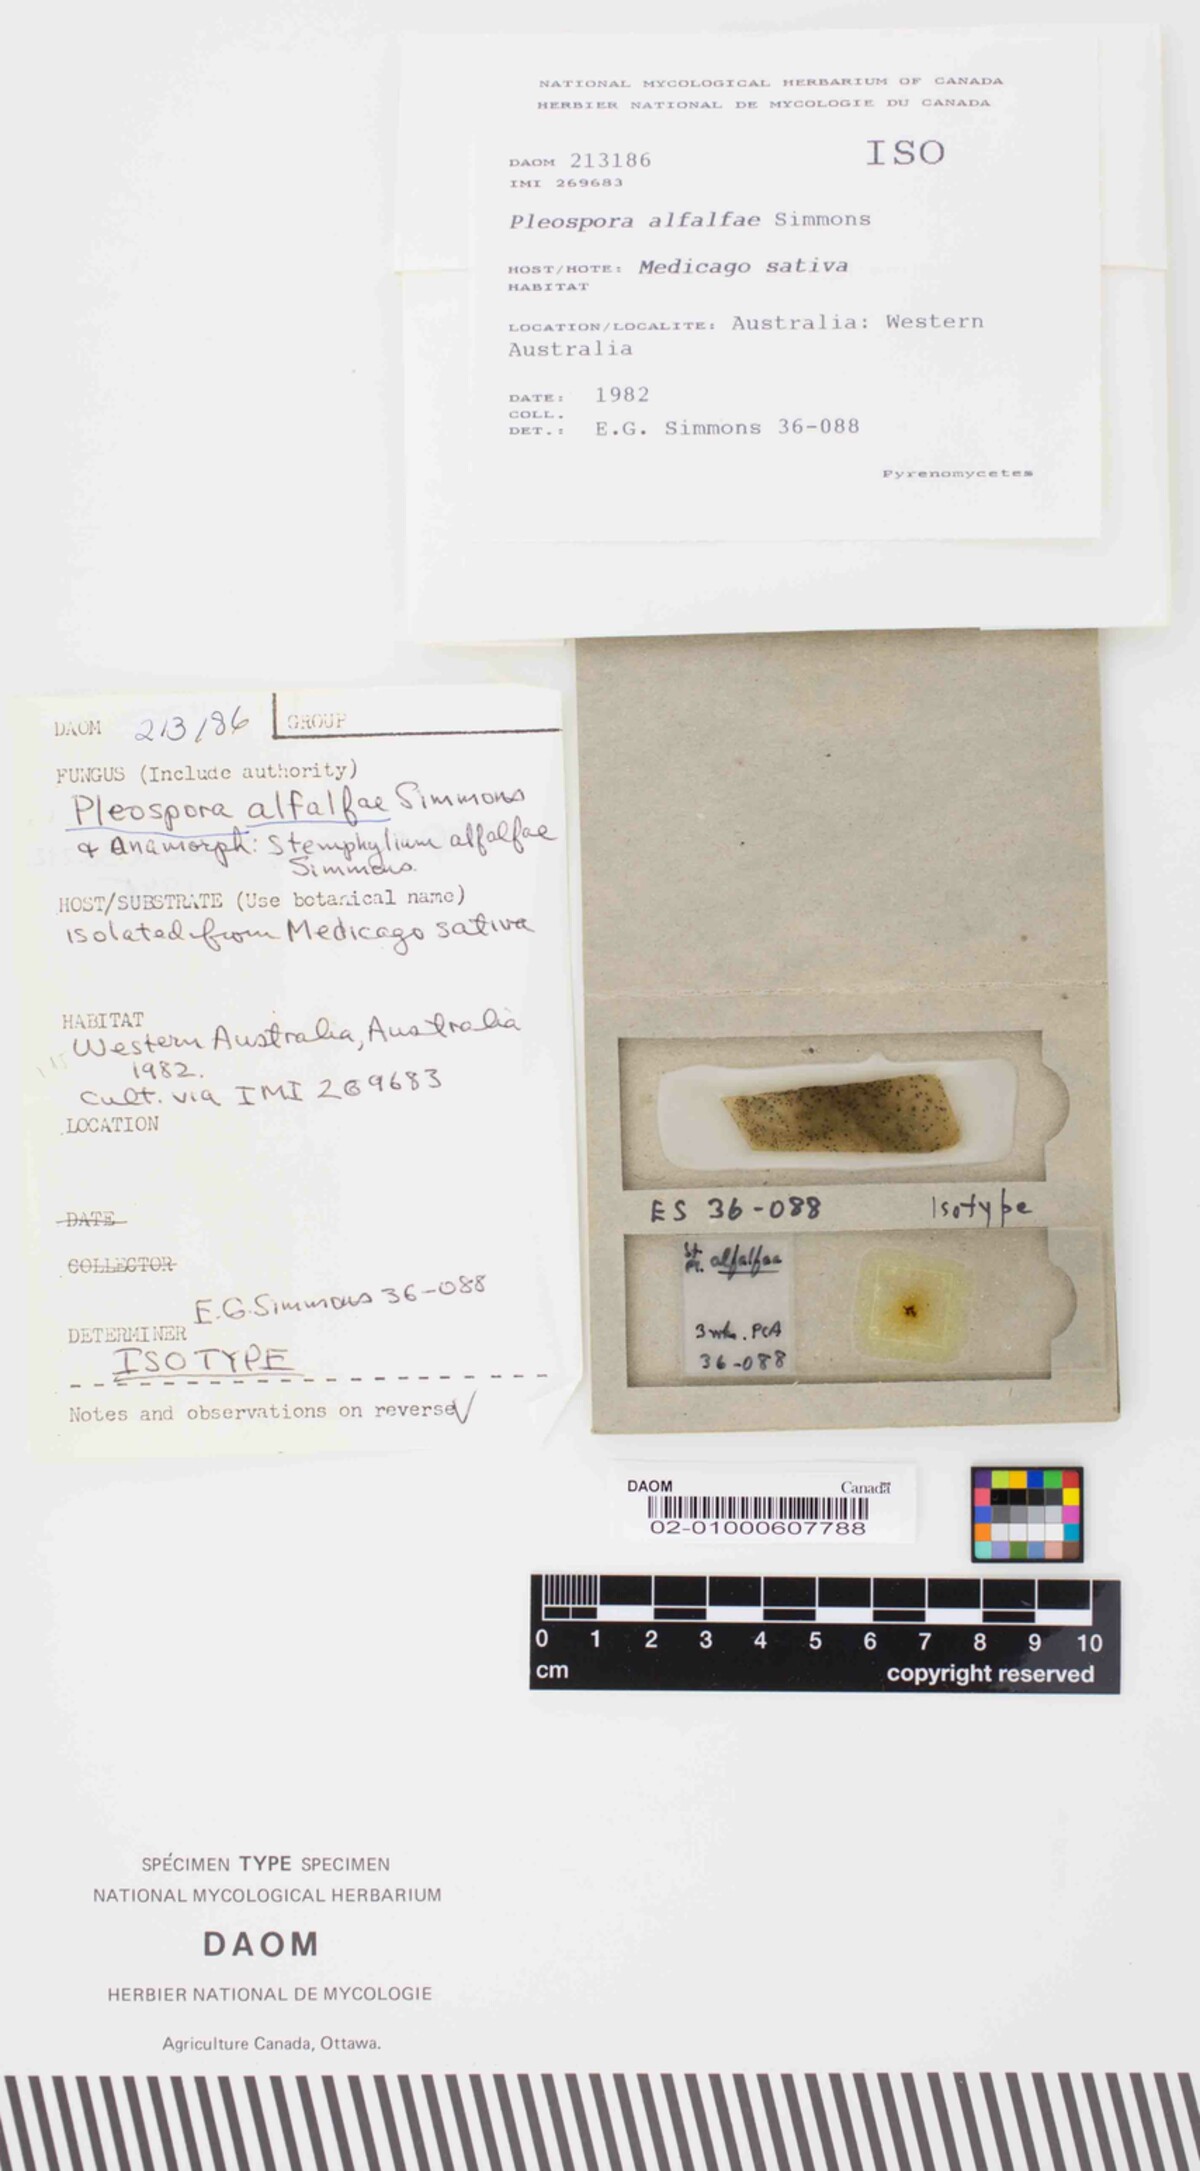 NATIONAL MYCOLOGICAL HERBARIUM OF CANADA
HERBIER NATIONAL DE MYCOLOGIE DU CANADA
DAOM 213186 ISO
IMI 269683
Pleospora alfalfae Simmons
HOST/HOTE: Medicago sativa
HABITAT
LOCATION/LOCALITE: Australia: Western
Australia
DATE: 1982
COLL.
DET.: E.G. Simmons 36-088
Pyrenomycetes
DAOM 213186 GROUP
FUNGUS (Include authority)
Pleospora alfalfae Simmons
& Anamorph: Stemphylium alfalfae
Simmons.
HOST/SUBSTRATE (Use botanical name)
isolated from Medicago sativa
HABITAT
Western Australia, Australia
1982.
Cult. via IMI 269683
LOCATION
DATE
COLLECTOR
E.G. Simmons 36-088
DETERMINER
ISOTYPE
Notes and observations on reverse √
ES 36-088 Isotype
St.
Pl. alfalfae
3 wk. PCA
36-088
DAOM Canada
02-01000607788
0 1 2 3 4 5 6 7 8 9 10
cm copyright reserved
SPÉCIMEN TYPE SPECIMEN
NATIONAL MYCOLOGICAL HERBARIUM
DAOM
HERBIER NATIONAL DE MYCOLOGIE
Agriculture Canada, Ottawa.